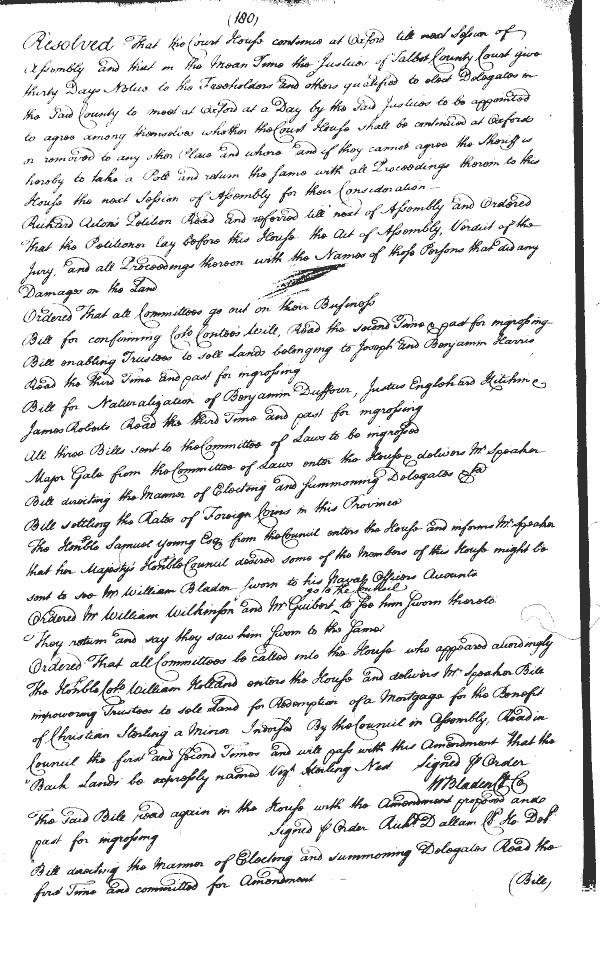 (180)
Resolved That the Court House continue at Oxford till next Session of
Assembly and that in the mean Time the Justices of Talbot County Court give
thirty Days Notice to the Freeholders and others qualified to elect Delegates in
the said County to meet at Oxford at a Day by the said Justices to be appointed
to agree among themselves whether the Court House shall be continued at Oxford
or removed to any other Place and where and if they cannot agree the Sheriff is
hereby to take a Poll and return the same with all Proceedings therein to this
House the next Session of Assembly for their Consideration
Richard Acton's Petition Read and referred till next of Assembly and Ordered
That the Petitioner lay before this House the Act of Assembly, Verdict of the
Jury, and all Proceedings thereon with the Names of those Persons that did any
Damage on the Land
Ordered That all Committees go out on their Business
Bill for confirming Colo Contee's Will, Read the second Time & past for ingrossing
Bill enabling Trustees to sell Lands belonging to Joseph and Benjamin Harris
Read the third Time and past for ingrossing
Bill for Naturalization of Benjamin Duffour, Justus Englehard Kitchine
James Roberts Read the third Time and past for ingrossing
All three Bills sent to the Committee of Laws to be ingrossed
Major Gale from the Committee of Laws enters the House & delivers Mr Speaker
Bill directing the Manner of Electing and Summoning Delegates &ca
Bill settling the Rates of Foreign Coins in this Province
The Honble Samuel Young Esq from the Council enters the House and informs Mr Speaker
that her Majesty's Honble Council desired some of the Members of this House might be
sent to see Mr William Bladen sworn to his Naval Officers Accounts
go to the Council
Ordered Mr William Wilkinson and Mr Guibert to see him sworn thereto
They return and say they saw him sworn to the same
Ordered That all Committees be called into the House who appeared accordingly
The Honble Colo William Holland enters the House and delivers Mr Speaker Bill
impowering Trustees to sell Land for Redemption of a Mortgage for the Benefit
of Christian Sterling a Minor Indorsed By the Council in Assembly, Read in
Council the first and second Times and will pass with this Amendment That the
Back Lands be expressly named Vizt Sterling Nest Signed p Order
W Bladen Cl Co
The said Bill read again in the House with the Amendment proposed and
past for ingrossing Signed p Order Richd Dallam Cl Ho Del
Bill directing the Manner of Electing and summoning Delegates Read the
first Time and committed for Amendment
(Bill,